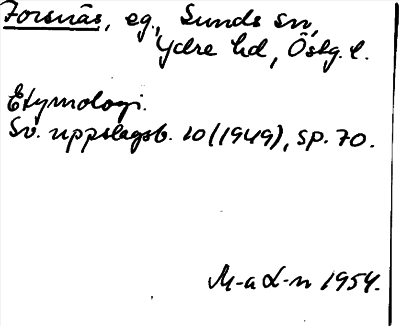 Forsnäs, eg., Sunds sn,
Ydre hd, Östg. l.
Etymologi.
Sv. uppslagsb. 10 (1949), sp. 70.
M-a L-n 1954.